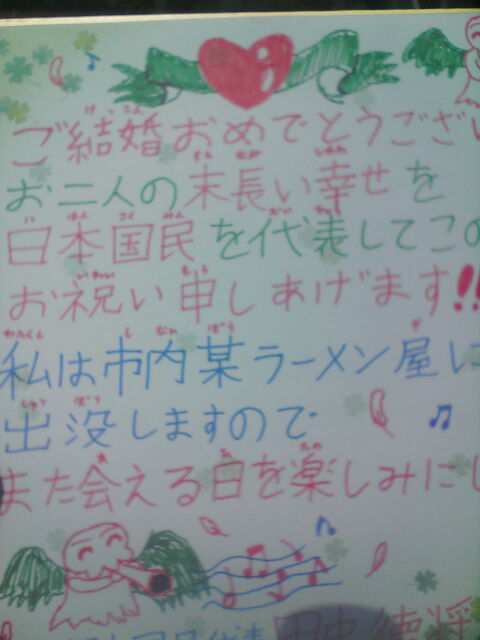 ご結婚おめでとうござい
お二人の末長い幸せを
日本国民を代表してこの
お祝い申しあげます!!
私は市内某ラーメン屋に
出没しますので
また会える日を楽しみにし